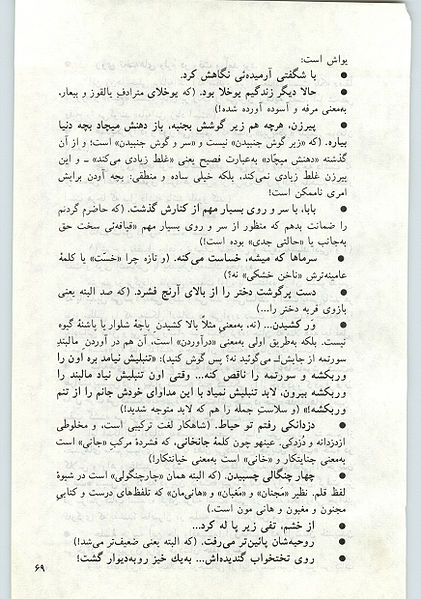 یواش است:
● با شگفتی آرمیده‌ئی نگاهش کرد.
● حالا دیگر زندگیم یوخلا بود. (که یوخلای مترادفِ یالقوز و بیعار،
به‌معنی مرفه و آسوده آورده شده!)
● پیرزن، هرچه هم زیر گوشش بجنبه، باز دهنش میچاد بچه دنیا
بیاره. (که «زیر گوش جنبیدن» نیست و «سر و گوش جنبیدن» است؛ و از آن
گذشته «دهنش میچاد» به‌عبارت فصیح یعنی «غلط زیادی می‌کند» ـ و این
پیرزن غلط زیادی نمی‌کند، بلکه خیلی ساده و منطقی: بچه آوردن برایش
امری ناممکن است!
● بابا، با سر و روی بسیار مهم از کنارش گذشت. (که حاضرم گردنم
را ضمانت بدهم که منظور از سر و روی بسیار مهم «قیافه‌ئی سخت حق
به‌جانب یا «حالتی جدی» بوده است!)
● سرماها که میشه، خساست می‌کنه. (و تازه چرا «خسّت» یا کلمهٔ
عامیانه‌ترش «ناخن خشکی» نه؟)
● دست پرگوشت دختر را از بالای آرنج فشرد. (که صد البته یعنی
بازوی فربه دختر را...)
● وَر کشیدن... (نه، به‌معنیِ مثلاً بالا کشیدنِ پاچهٔ شلوار یا پاشنهٔ گیوه
نیست. بلکه به‌طریق اولی به‌معنی «درآوردن» است، آن هم در آوردن مالبندِ
سورتمه از جایش!ـ می‌گوئید نه؟ پس گوش کنید): «تنبلیش نیامد بره اون را
وربکشه و سورتمه را ناقص کنه... وقتی اون تنبلیش نیاد مالبند را
وربکشه بیرون، لابد تنبلیش نمیاد با این مداوای خودش جانم را از تنم
وربکشه!» (و سلاستِ جمله را هم که لابد متوجه شدید!)
● دزدانکی رفتم تو حیاط. (شاهکار لغت ترکیبی است، و مخلوطی
ازدزدانه و دُزدکی. عینهو چون کلمهٔ جانخانی، که فشردهٔ مرکبِ «جانی» است
به‌معنی جنایتکار و «خانی» است به‌معنی خیانتکار!)
● چهار چنگالی چسبیدن. (که البته همان «چارچنگولی» است در شیوهٔ
لفظ قلم. نظیر «مَجنان» و «مَغبان» و «هانی‌مان» که تلفظ‌های درست و کتابیِ
مجنون و مغبون و هانی مون است.)
● از خشم، تفی زیر پا له کرد...
● روحیه‌شان پائین‌تر می‌رفت. (که البته یعنی ضعیف‌تر می‌شد!)
● روی تختخواب گندیده‌اش... به‌یك خیز روبه‌دیوار گشت!
۶۹